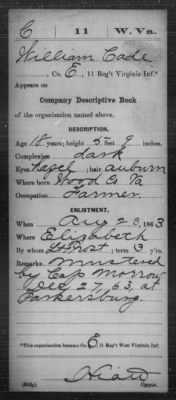 C | 11 | W. Va.
William Cade
Co. E, 11 Reg't Virginia Inf.*
Appears on
Company Descriptive Book
of the organization named above.
DESCRIPTION.
Age 18 years; height 5 feet 9 inches.
Complexion dark
Eyes hazel; hair auburn
Where born Wood Co Va
Occupation Farmer
ENLISTMENT.
When Aug 23, 1863
Where Elizabeth
By whom Lt Post; term 3 y'rs.
Remarks. mustered
by Cap Morrow
Dec 27, 63, at
Parkersburg.
*This organization became Co. E, 11 Reg't West Virginia Inf.
Hiatt
Copyist.